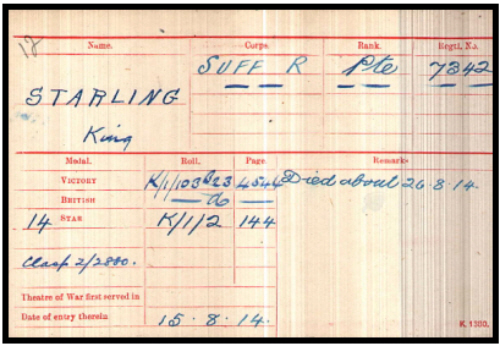 Name. Corps. Rank. Regtl. No.
SUFF R Pte 7342
STARLING
King
Medal. Roll. Page. Remarks
VICTORY K/1/103 B23 4544 Died about 26.8.14.
BRITISH — do —
14 STAR K/1/2 144
Clasp 2/2880.
Theatre of War first served in
Date of entry therein 15.8.14.
K. 1380.